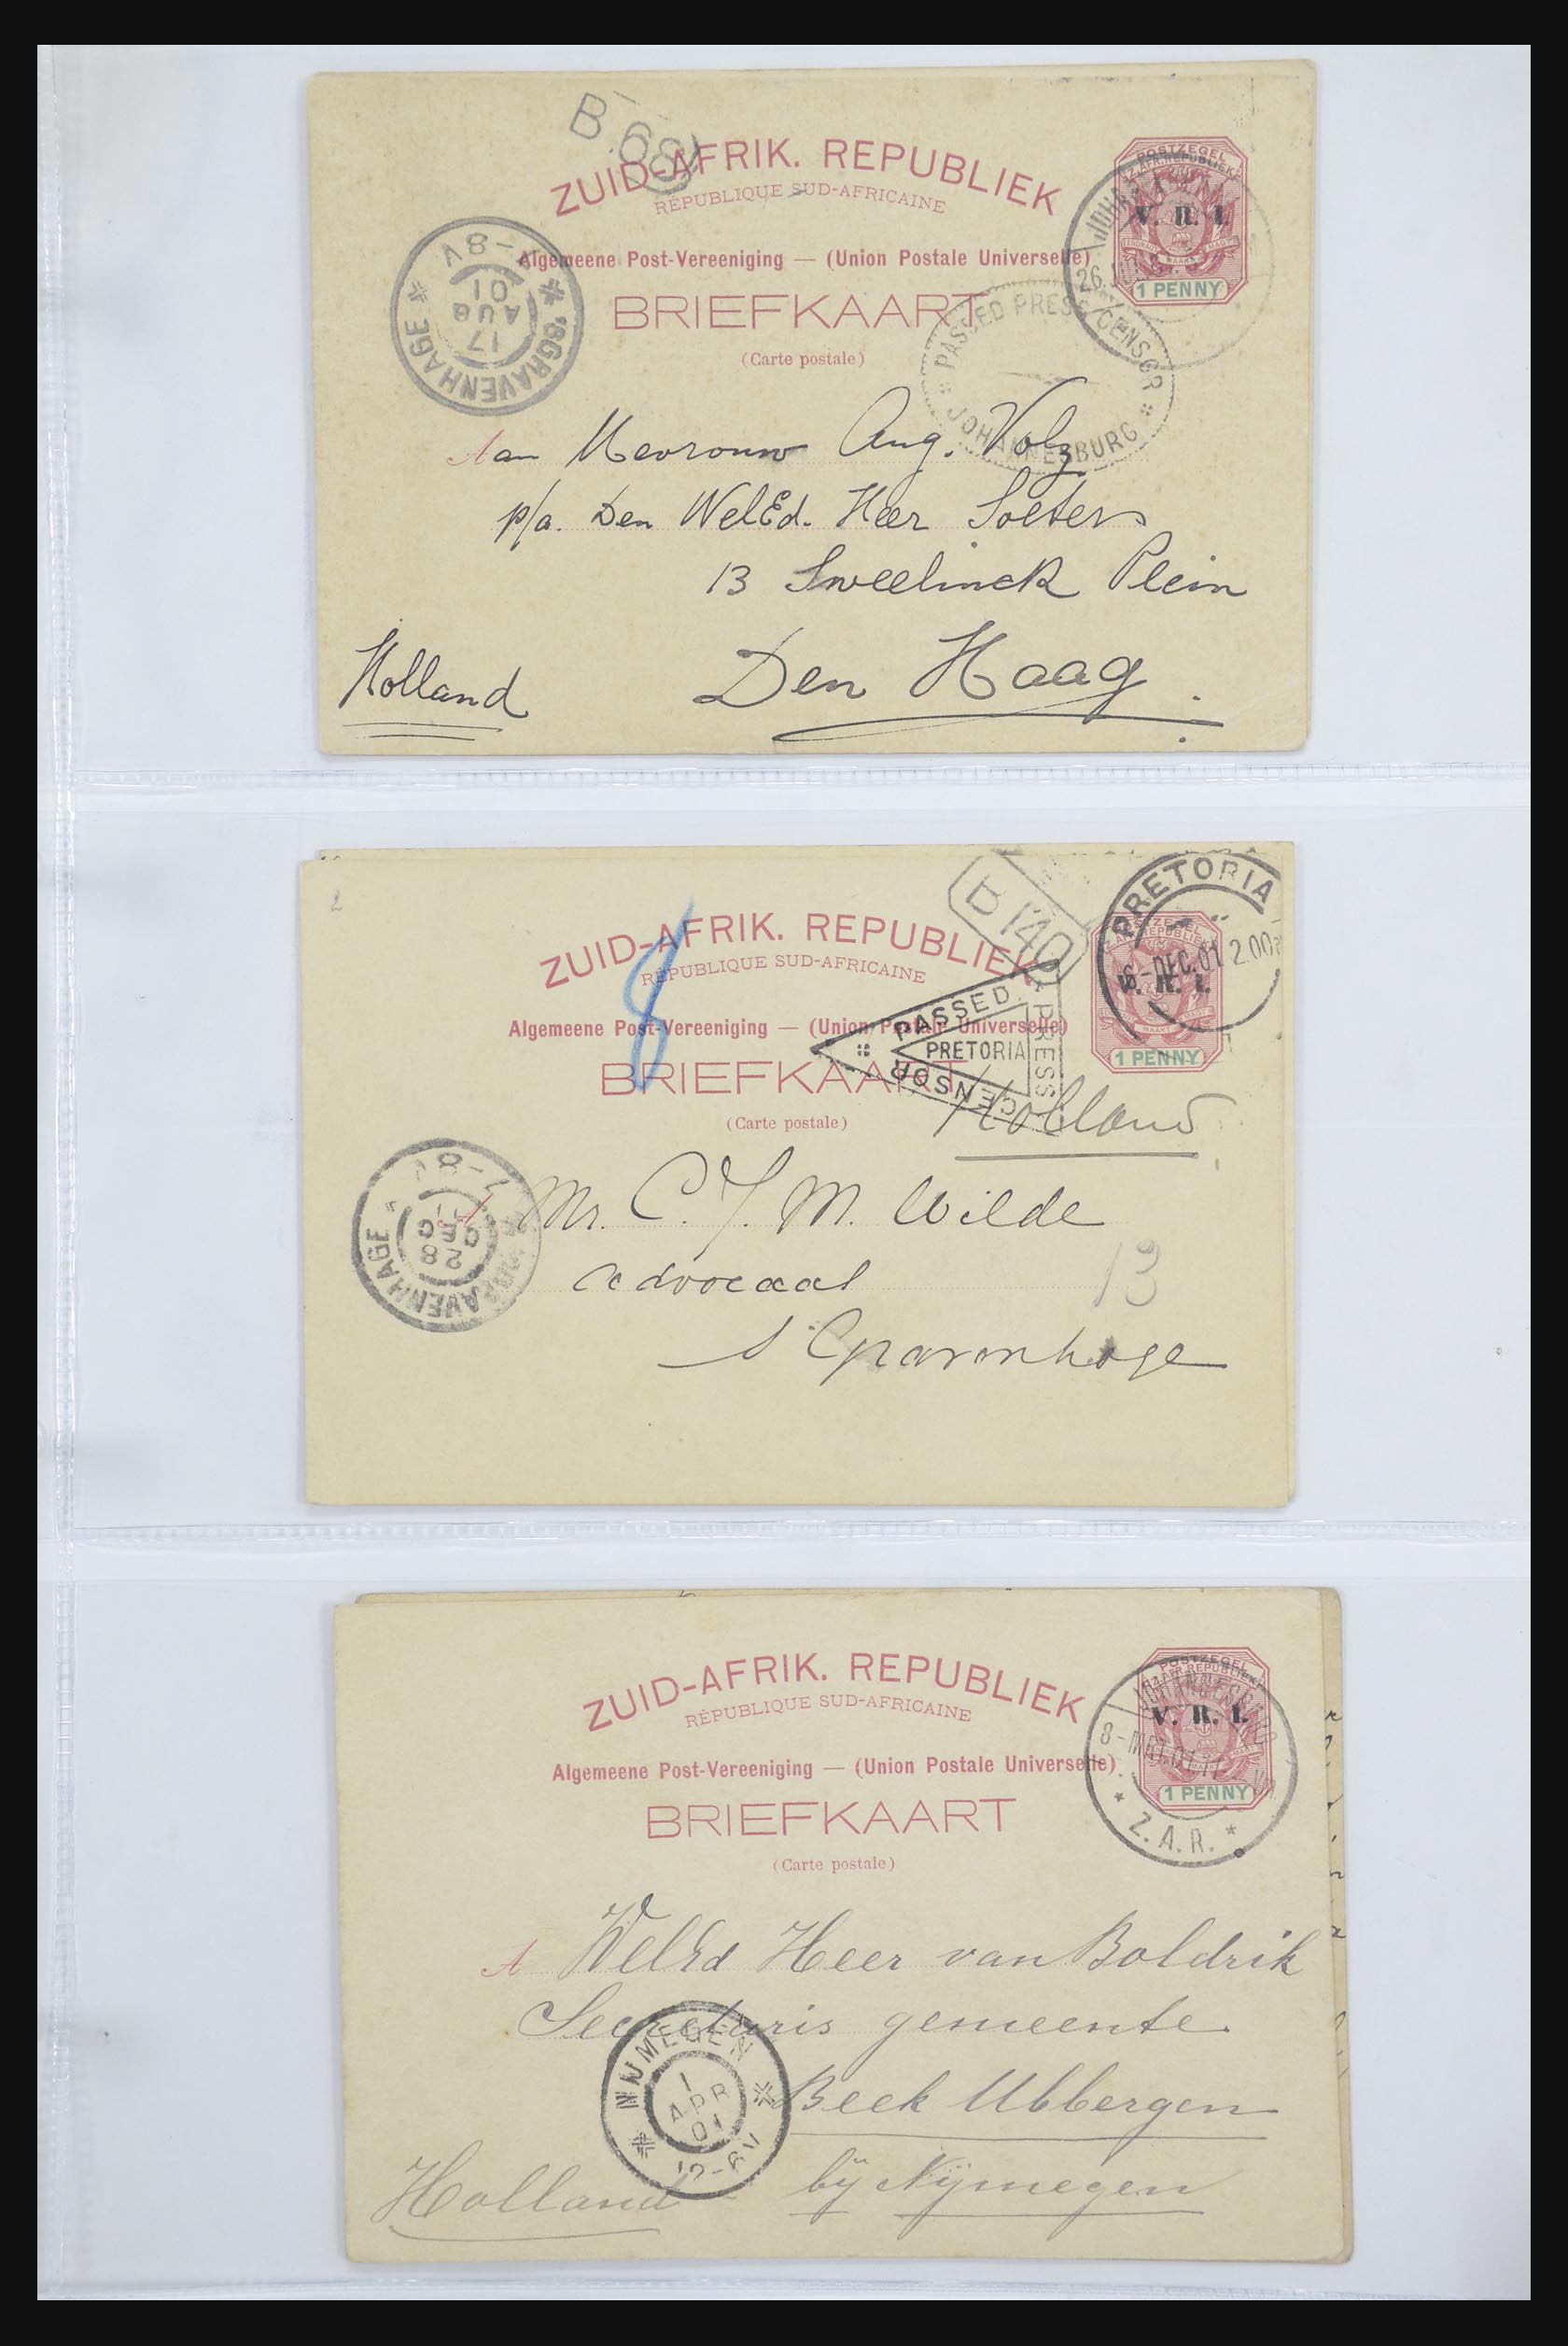 B 68
ZUID-AFRIK. REPUBLIEK
RÉPUBLIQUE SUD-AFRICAINE
Algemeene Post-Vereeniging — (Union Postale Universelle)
BRIEFKAART
(Carte postale)
POSTZEGEL
Z. AFR. REPUBLIEK
V. R. I.
1 PENNY
26
'SGRAVENHAGE
17
AUG
01
-8V
PASSED PRESS CENSOR
JOHANNESBURG
Aan Mevrouw Aug. Volz
p/a. Den WelEd. Heer Soeters
13 Sweelinck Plein
Den Haag.
Holland
2
ZUID-AFRIK. REPUBLIEK
RÉPUBLIQUE SUD-AFRICAINE
Algemeene Post-Vereeniging — (Union Postale Universelle)
BRIEFKAART
(Carte postale)
8
B 140
PRETORIA
6-DEC.01 2.00
V. R. I.
1 PENNY
PASSED
PRESS
CENSOR
PRETORIA
Holland
'SGRAVENHAGE
28
DEC
Mr. C. J. M. Wilde
advocaat
13
s Gravenhage
ZUID-AFRIK. REPUBLIEK
RÉPUBLIQUE SUD-AFRICAINE
Algemeene Post-Vereeniging — (Union Postale Universelle)
BRIEFKAART
(Carte postale)
POSTZEGEL
Z. AFR. REPUBLIEK
V. R. I.
1 PENNY
JOHANNESBURG
8-MRT.01
* Z.A.R. *
A WelEd Heer van Boldrik
Secretaris gemeente
Beek Ubbergen
bij Nijmegen
Holland
NIJMEGEN
1
APR
01
12-6V